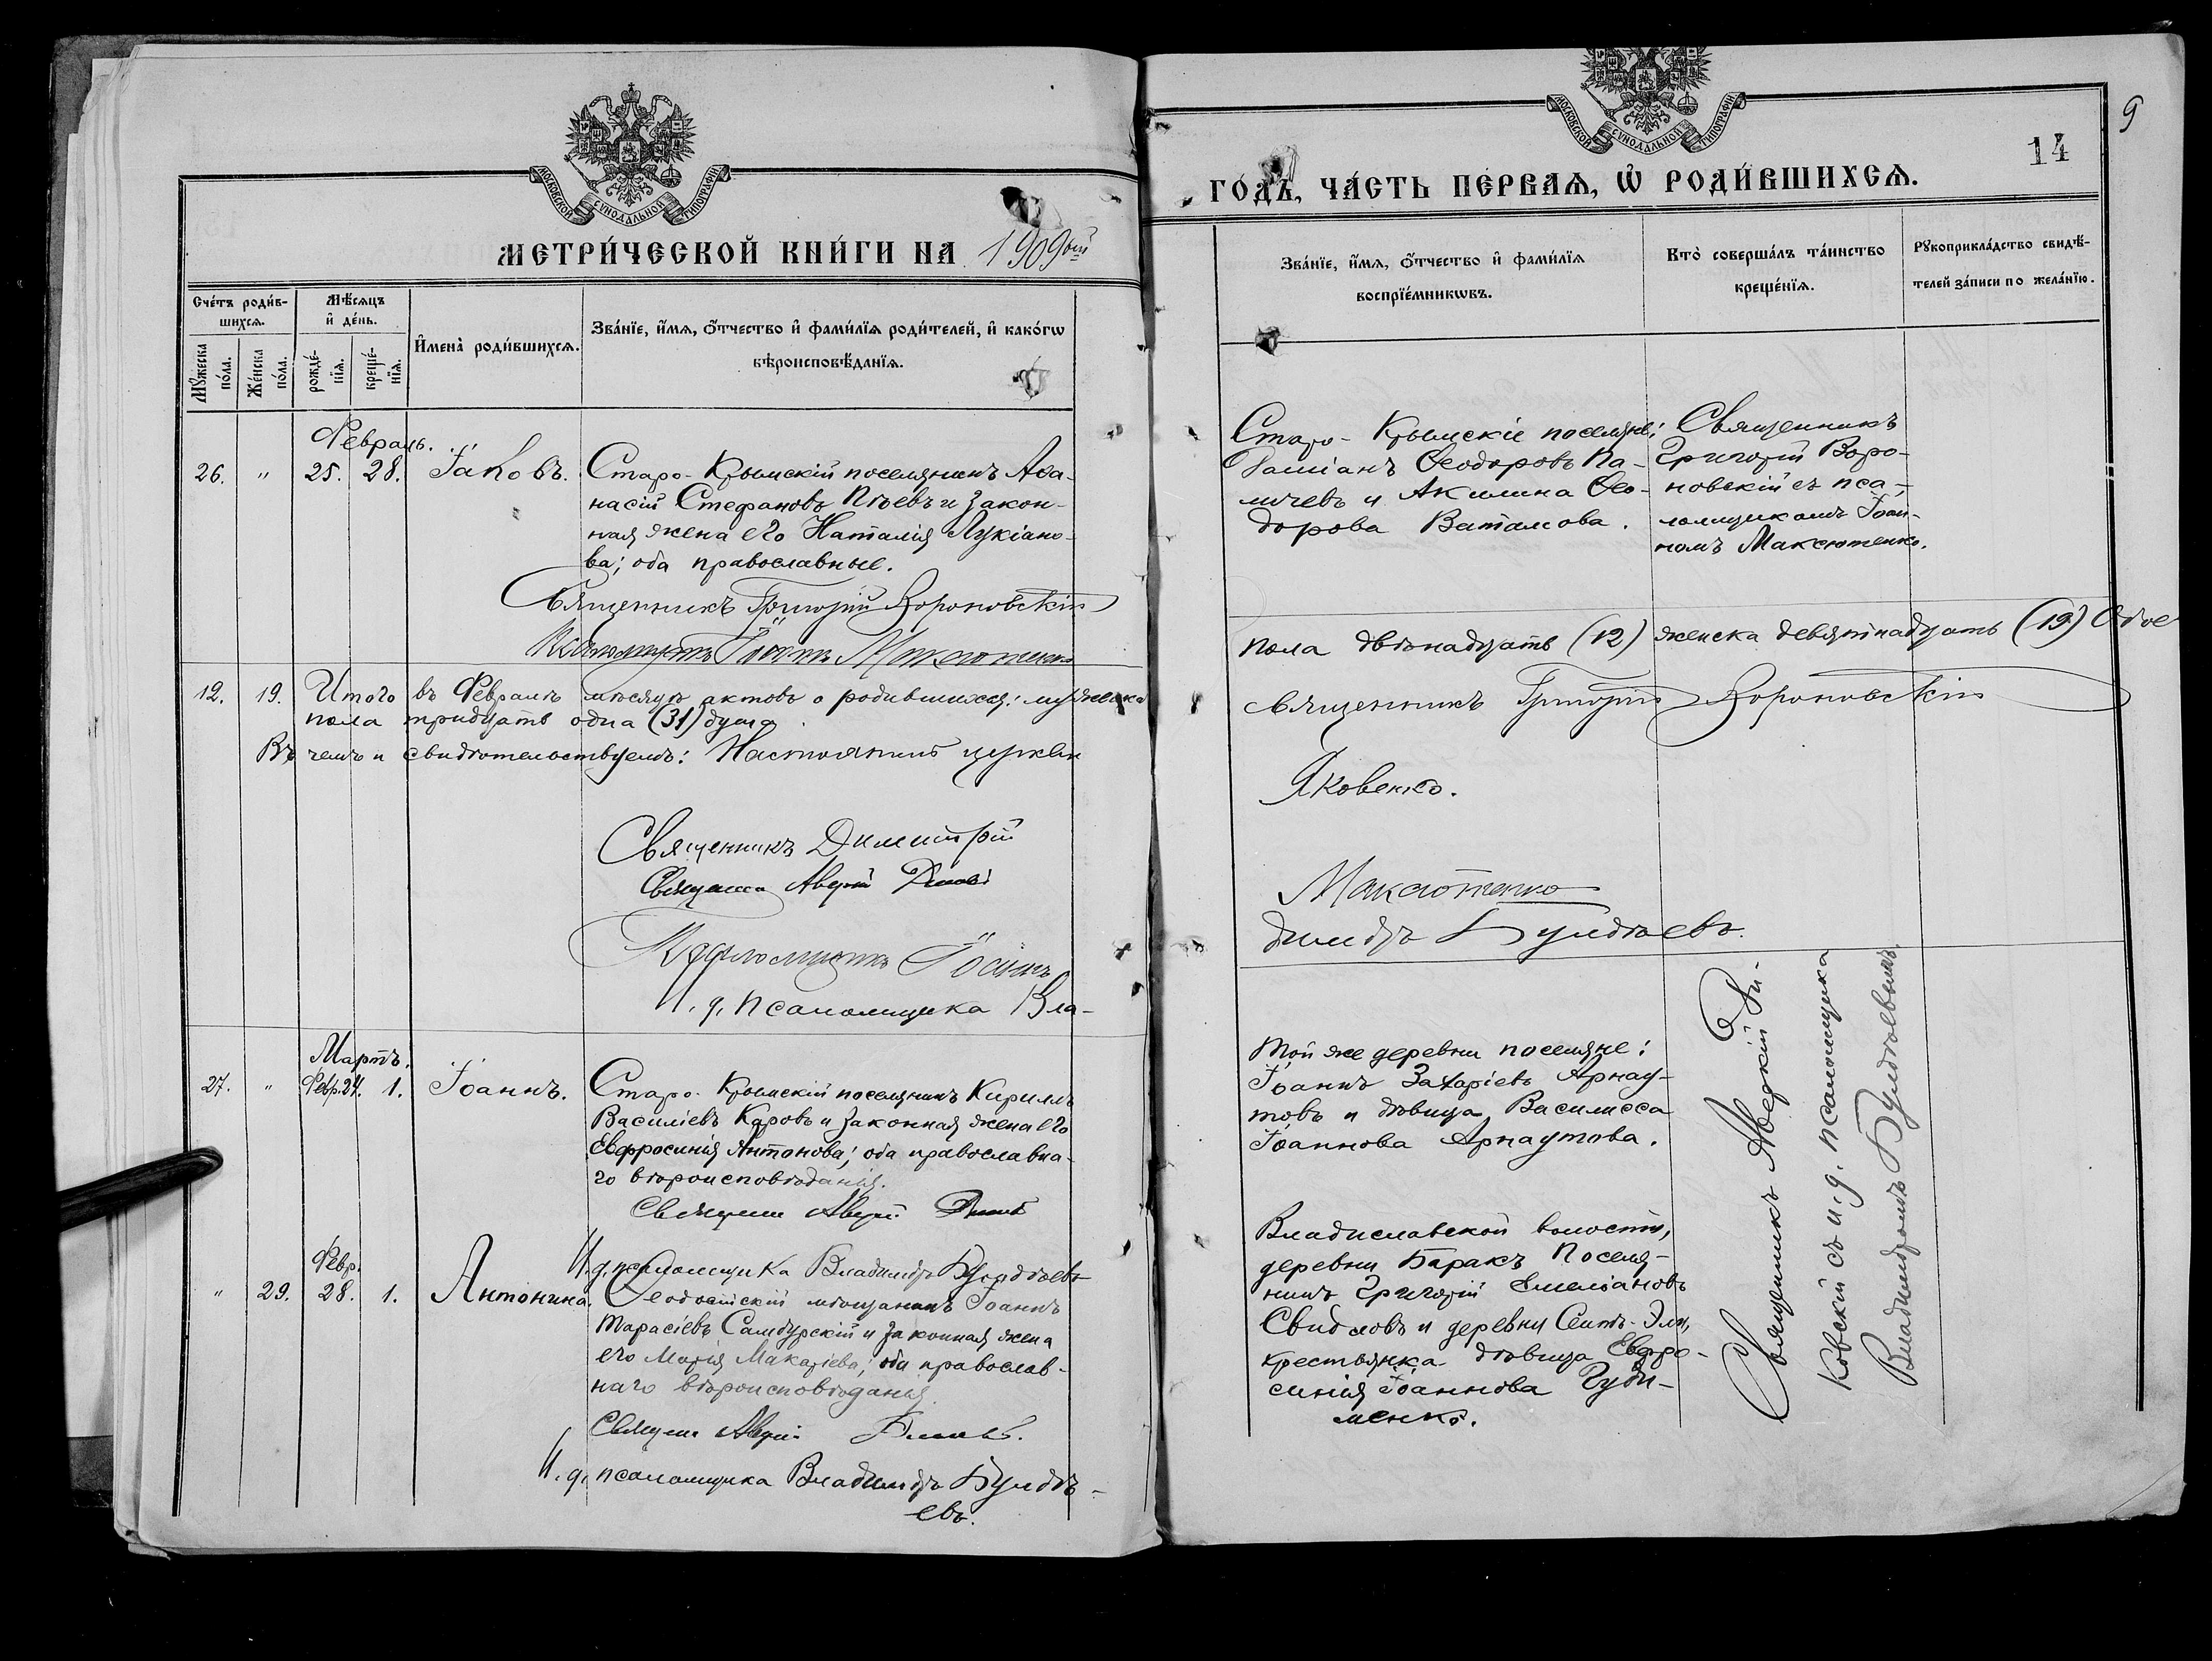 МОСКОВСКОЙ СѴНОДАЛЬНОЙ ТИПОГРАФІИ
МЕТРИ́ЧЕСКОЙ КНИ́ГИ НА 1909ый
Сче́тъ роди́в-
шихсѧ.
Мꙋ́жеска по́ла.
Же́нска по́ла.
Мѣ́сѧцъ
и҆ де́нь.
рожде́-
нїѧ.
креще́-
нїѧ.
И҆мена̀ роди́вшихсѧ.
Зва́нїе, и҆́мѧ, ѻ҆́тчество и҆ фами́лїѧ роди́телей, и҆ како́гѡ
вѣроисповѣ́данїѧ.
Февраль.
26. " 25. 28. Іаковъ.
Старо-Крымскій поселянинъ Аѳа-
насій Стефановъ Пѣевъ и закон-
ная жена его Наталія Лукіано-
ва; оба православные.
Священникъ Григорій Вороновскій
Псаломщикъ Іоаннъ Максютенко
12. 19. Итого въ Февралѣ мѣсяцѣ актовъ о родившихся: мужеска
пола тридцать одна (31) душа.
Въ чемъ и свидѣтельствуемъ: Настоятель церкви
Священникъ Димитрій
Священникъ Аверкій
Псаломщикъ Іоаннъ
И. д. псаломщика Вла-
Мартъ.
27. " Февр. 24. 1. Іоаннъ.
Старо-Крымскій поселянинъ Кириллъ
Василіевъ Каровъ и законная жена его
Евфросинія Антонова; оба православна-
го вѣроисповѣданія.
Священникъ Аверкій
И. д. псаломщика Владиміръ Булдѣевъ
Февр.
" 29. 28. 1. Антонина.
Ѳеодосійскій мѣщанинъ Іоаннъ
Тарасіевъ Самбурскій и законная жена
его Марія Макаріева; оба православ-
наго вѣроисповѣданія
Священникъ Аверкій
И. д. псаломщика Владиміръ Булдѣ-
евъ.
МОСКОВСКОЙ СѴНОДАЛЬНОЙ ТИПОГРАФІИ
9
14
ГО́ДЪ, ЧА́СТЬ ПЕ́РВАѦ, Ѽ РОДИ́ВШИХСѦ.
Зва́нїе, и҆́мѧ, ѻ҆́тчество и҆ фами́лїѧ
воспрїе́мникѡвъ.
Кто̀ соверша́лъ та́инство
креще́нїѧ.
Рꙋкоприкла́дство свидѣ́-
телей за́писи по жела́нїю.
Старо-Крымскіе поселяне:
Даміанъ Ѳеодоровъ Па-
личевъ и Акилина Ѳео-
дорова Ватамова.
Священникъ
Григорій Воро-
новскій съ пса-
ломщикомъ Іоан-
номъ Максютенко.
пола двѣнадцать (12) женска девятнадцать (19) Обое
Священникъ Григорій Вороновскій
Яковенко.
Максютенко
диміръ Булдѣевъ.
Той же деревни поселяне:
Іоаннъ Захаріевъ Арнау-
товъ и дѣвица Василисса
Іоаннова Арнаутова.
Владиславской волости,
деревни Баракъ поселя-
нинъ Григорій Емеліановъ
и деревни Сеитъ-Эли,
крестьянка дѣвица Евфро-
синія Іоаннова Гуди-
менко.
Священникъ Аверкій
ковскій съ и. д. псаломщика
Владиміромъ Булдѣевымъ.